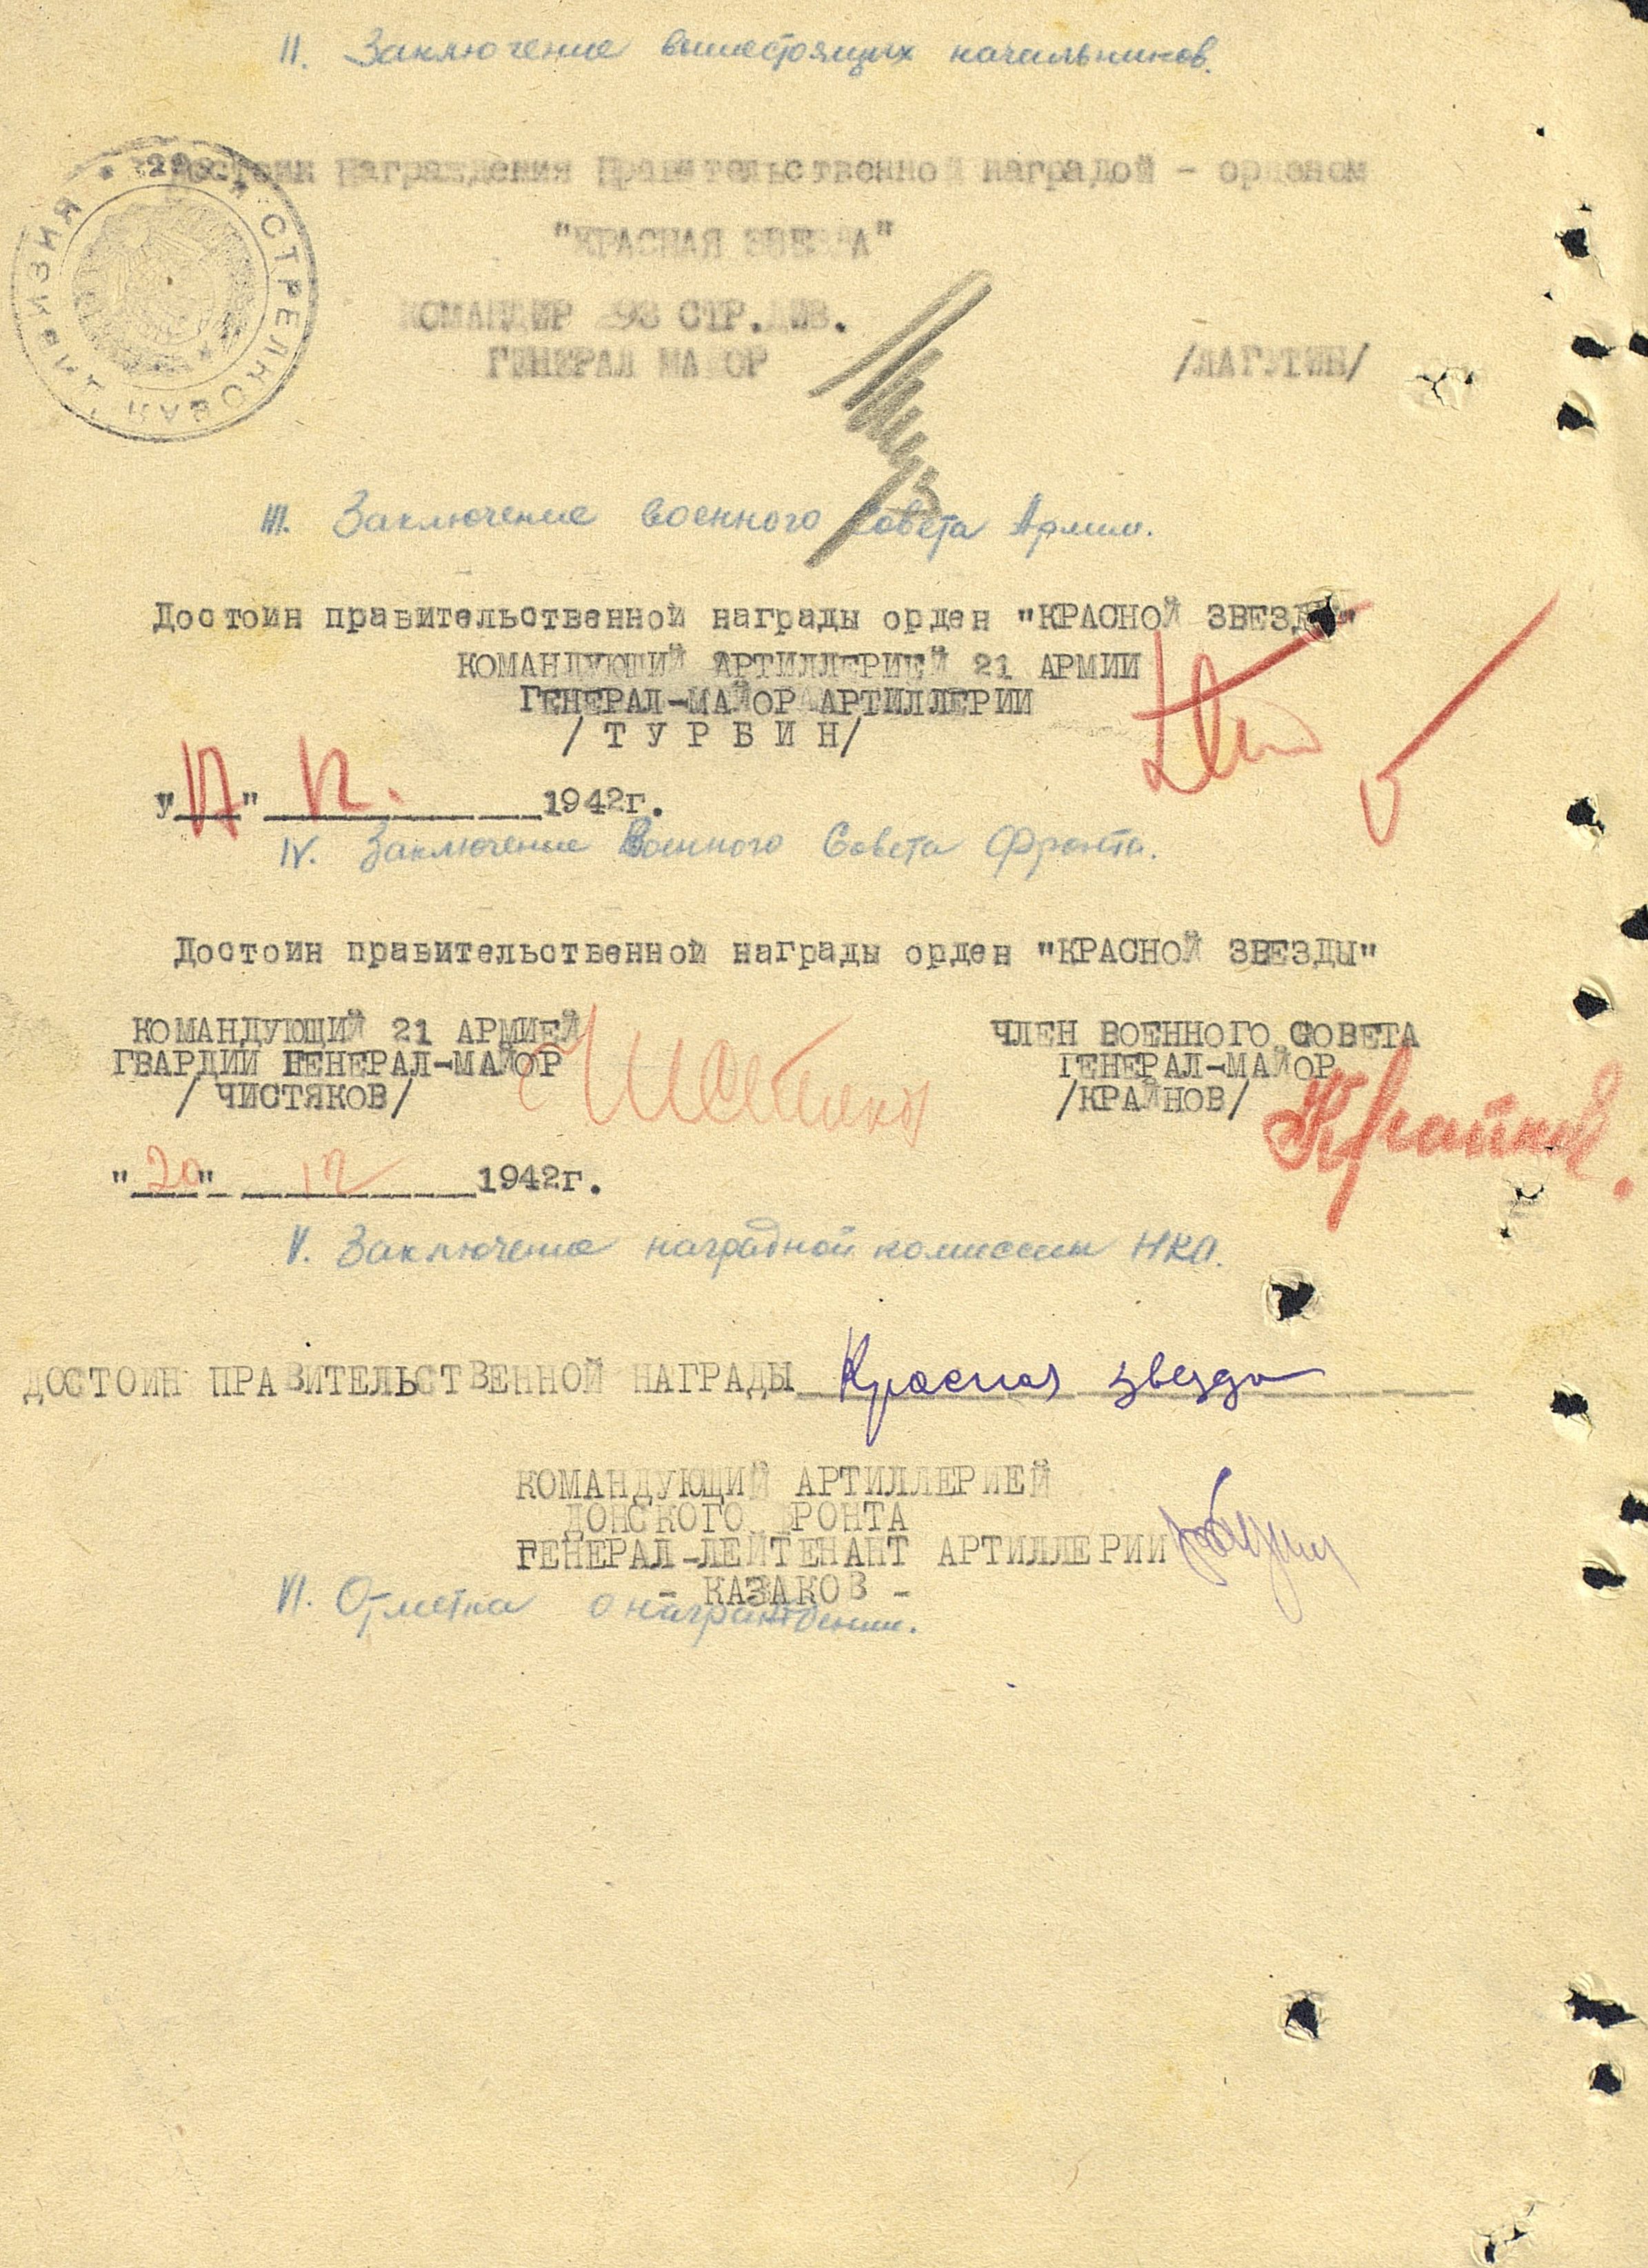 II. Заключение вышестоящих начальников.
Достоин награждения Правительственной наградой - орденом
"КРАСНАЯ ЗВЕЗДА"
КОМАНДИР 293 СТР.ДИВ.
ГЕНЕРАЛ МАЙОР /ЛАГУТИН/
СТРЕЛКОВАЯ ДИВИЗИЯ
III. Заключение военного Совета Армии.
Достоин правительственной награды орден "КРАСНОЙ ЗВЕЗДЫ"
КОМАНДУЮЩИЙ АРТИЛЛЕРИЕЙ 21 АРМИИ
ГЕНЕРАЛ-МАЙОР АРТИЛЛЕРИИ
/ Т У Р Б И Н/
"17" 12. 1942г.
IV. Заключение Военного Совета Фронта.
Достоин правительственной награды орден "КРАСНОЙ ЗВЕЗДЫ"
КОМАНДУЮЩИЙ 21 АРМИЕЙ ЧЛЕН ВОЕННОГО СОВЕТА
ГВАРДИИ ГЕНЕРАЛ-МАЙОР ГЕНЕРАЛ-МАЙОР
/ ЧИСТЯКОВ/ Чистяков /КРАЙНОВ/ Крайнов.
"20" 12 1942г.
V. Заключение наградной комиссии НКО.
ДОСТОИН ПРАВИТЕЛЬСТВЕННОЙ НАГРАДЫ Красная звезда
КОМАНДУЮЩИЙ АРТИЛЛЕРИЕЙ
ДОНСКОГО ФРОНТА
ГЕНЕРАЛ-ЛЕЙТЕНАНТ АРТИЛЛЕРИИ
- КАЗАКОВ -
VI. Отметка о награждении.